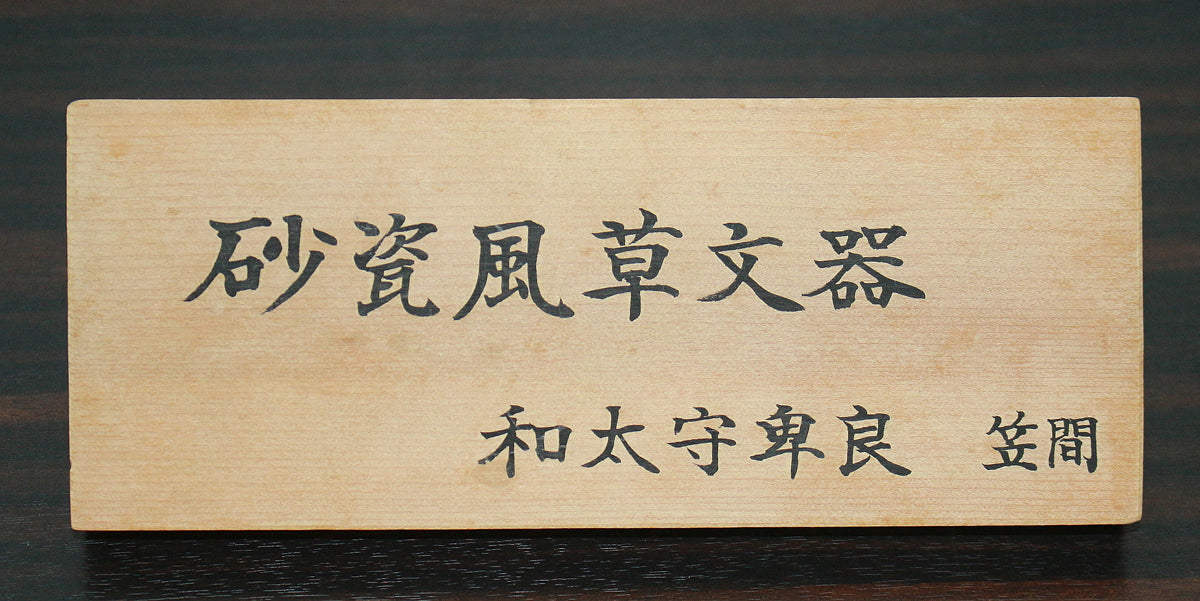 砂瓷風草文器
和太守卑良 笠間